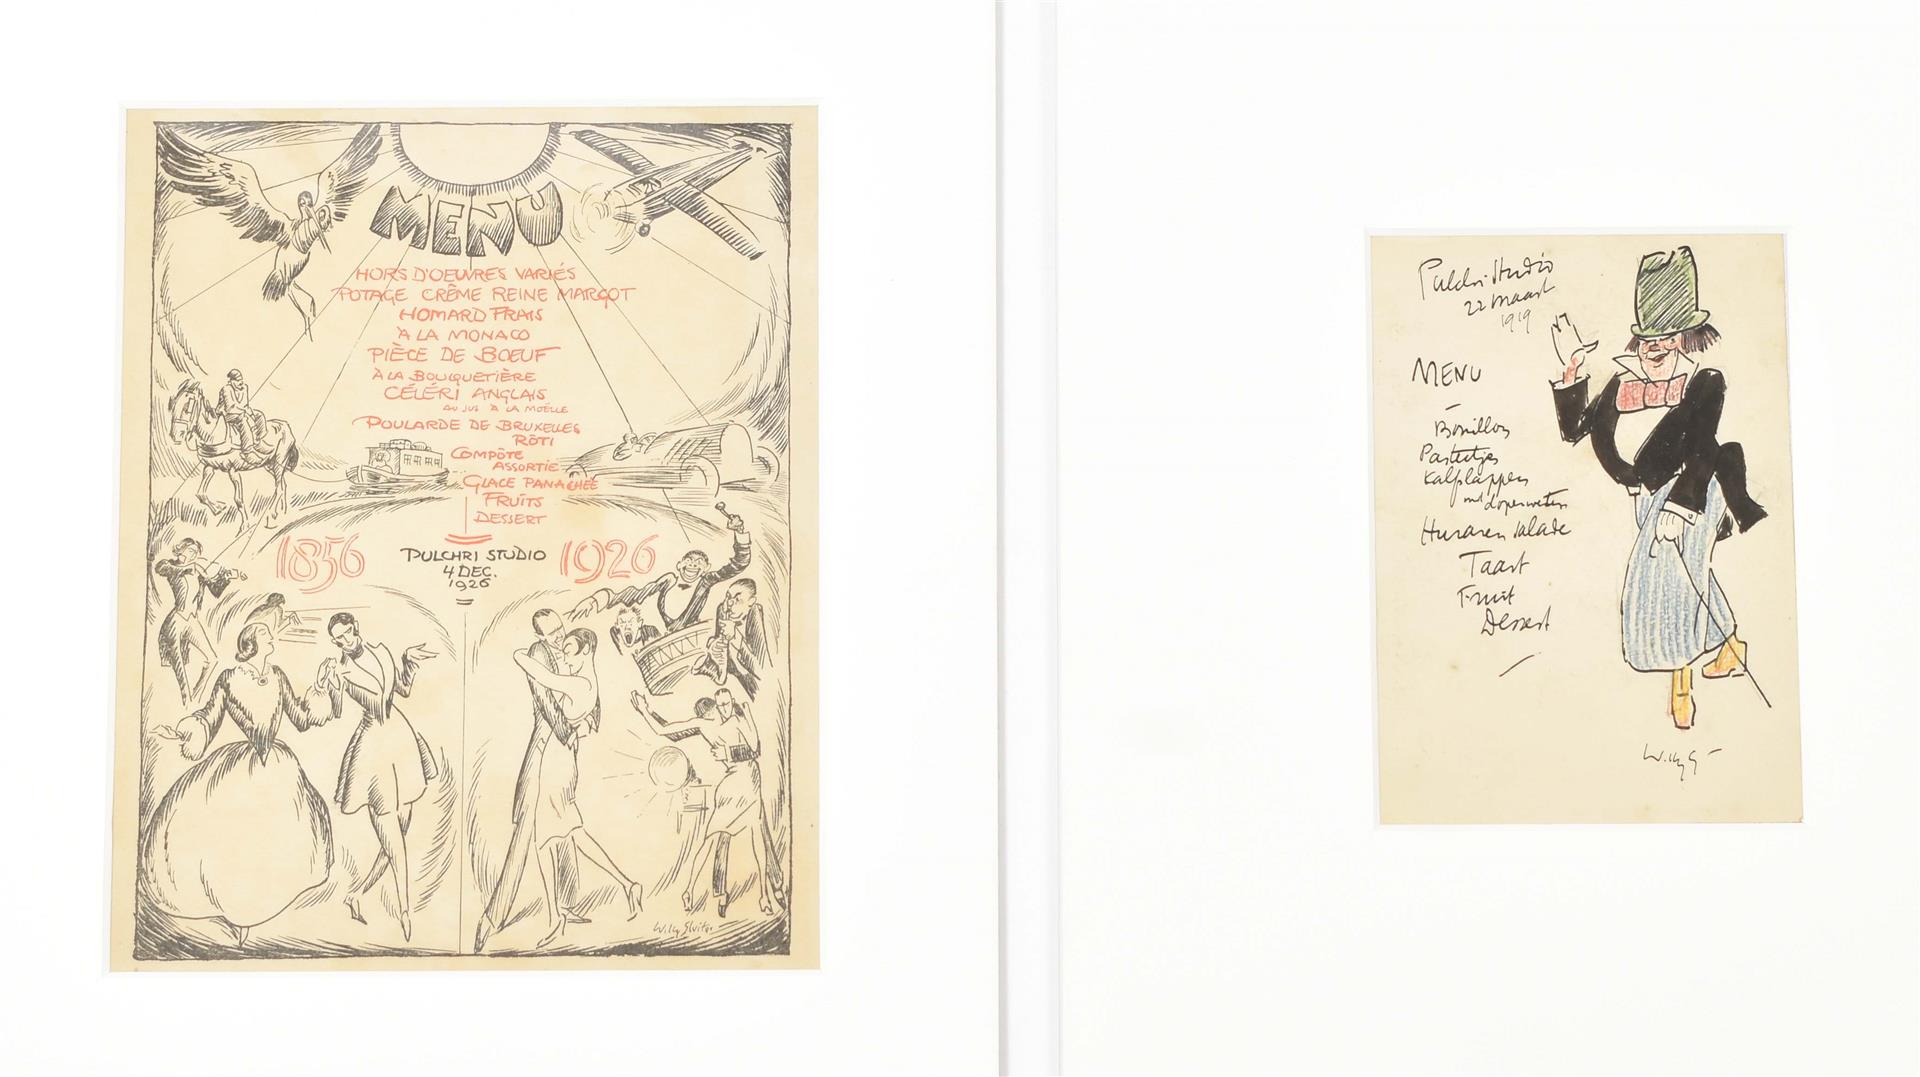 MENU
HORS D'OEUVRES VARIÉS
POTAGE CRÊME REINE MARGOT
HOMARD FRAIS
À LA MONACO
PIÈCE DE BOEUF
À LA BOUQUETIÈRE
CÉLÉRI ANGLAIS
AU JUS À LA MOËLLE
POULARDE DE BRUXELLES
RÔTI
COMPÔTE
ASSORTIE
GLACE PANACHÉE
FRUITS
DESSERT
1856 PULCHRI STUDIO 1926
4 DEC.
1926
Willy Sluiter
Pulchri Studio
22 maart
1919
MENU
Bouillon
Pasteitjes
Kalfslappen
met doperwten
Huzaren salade
Taart
Fruit
Dessert
Willy S